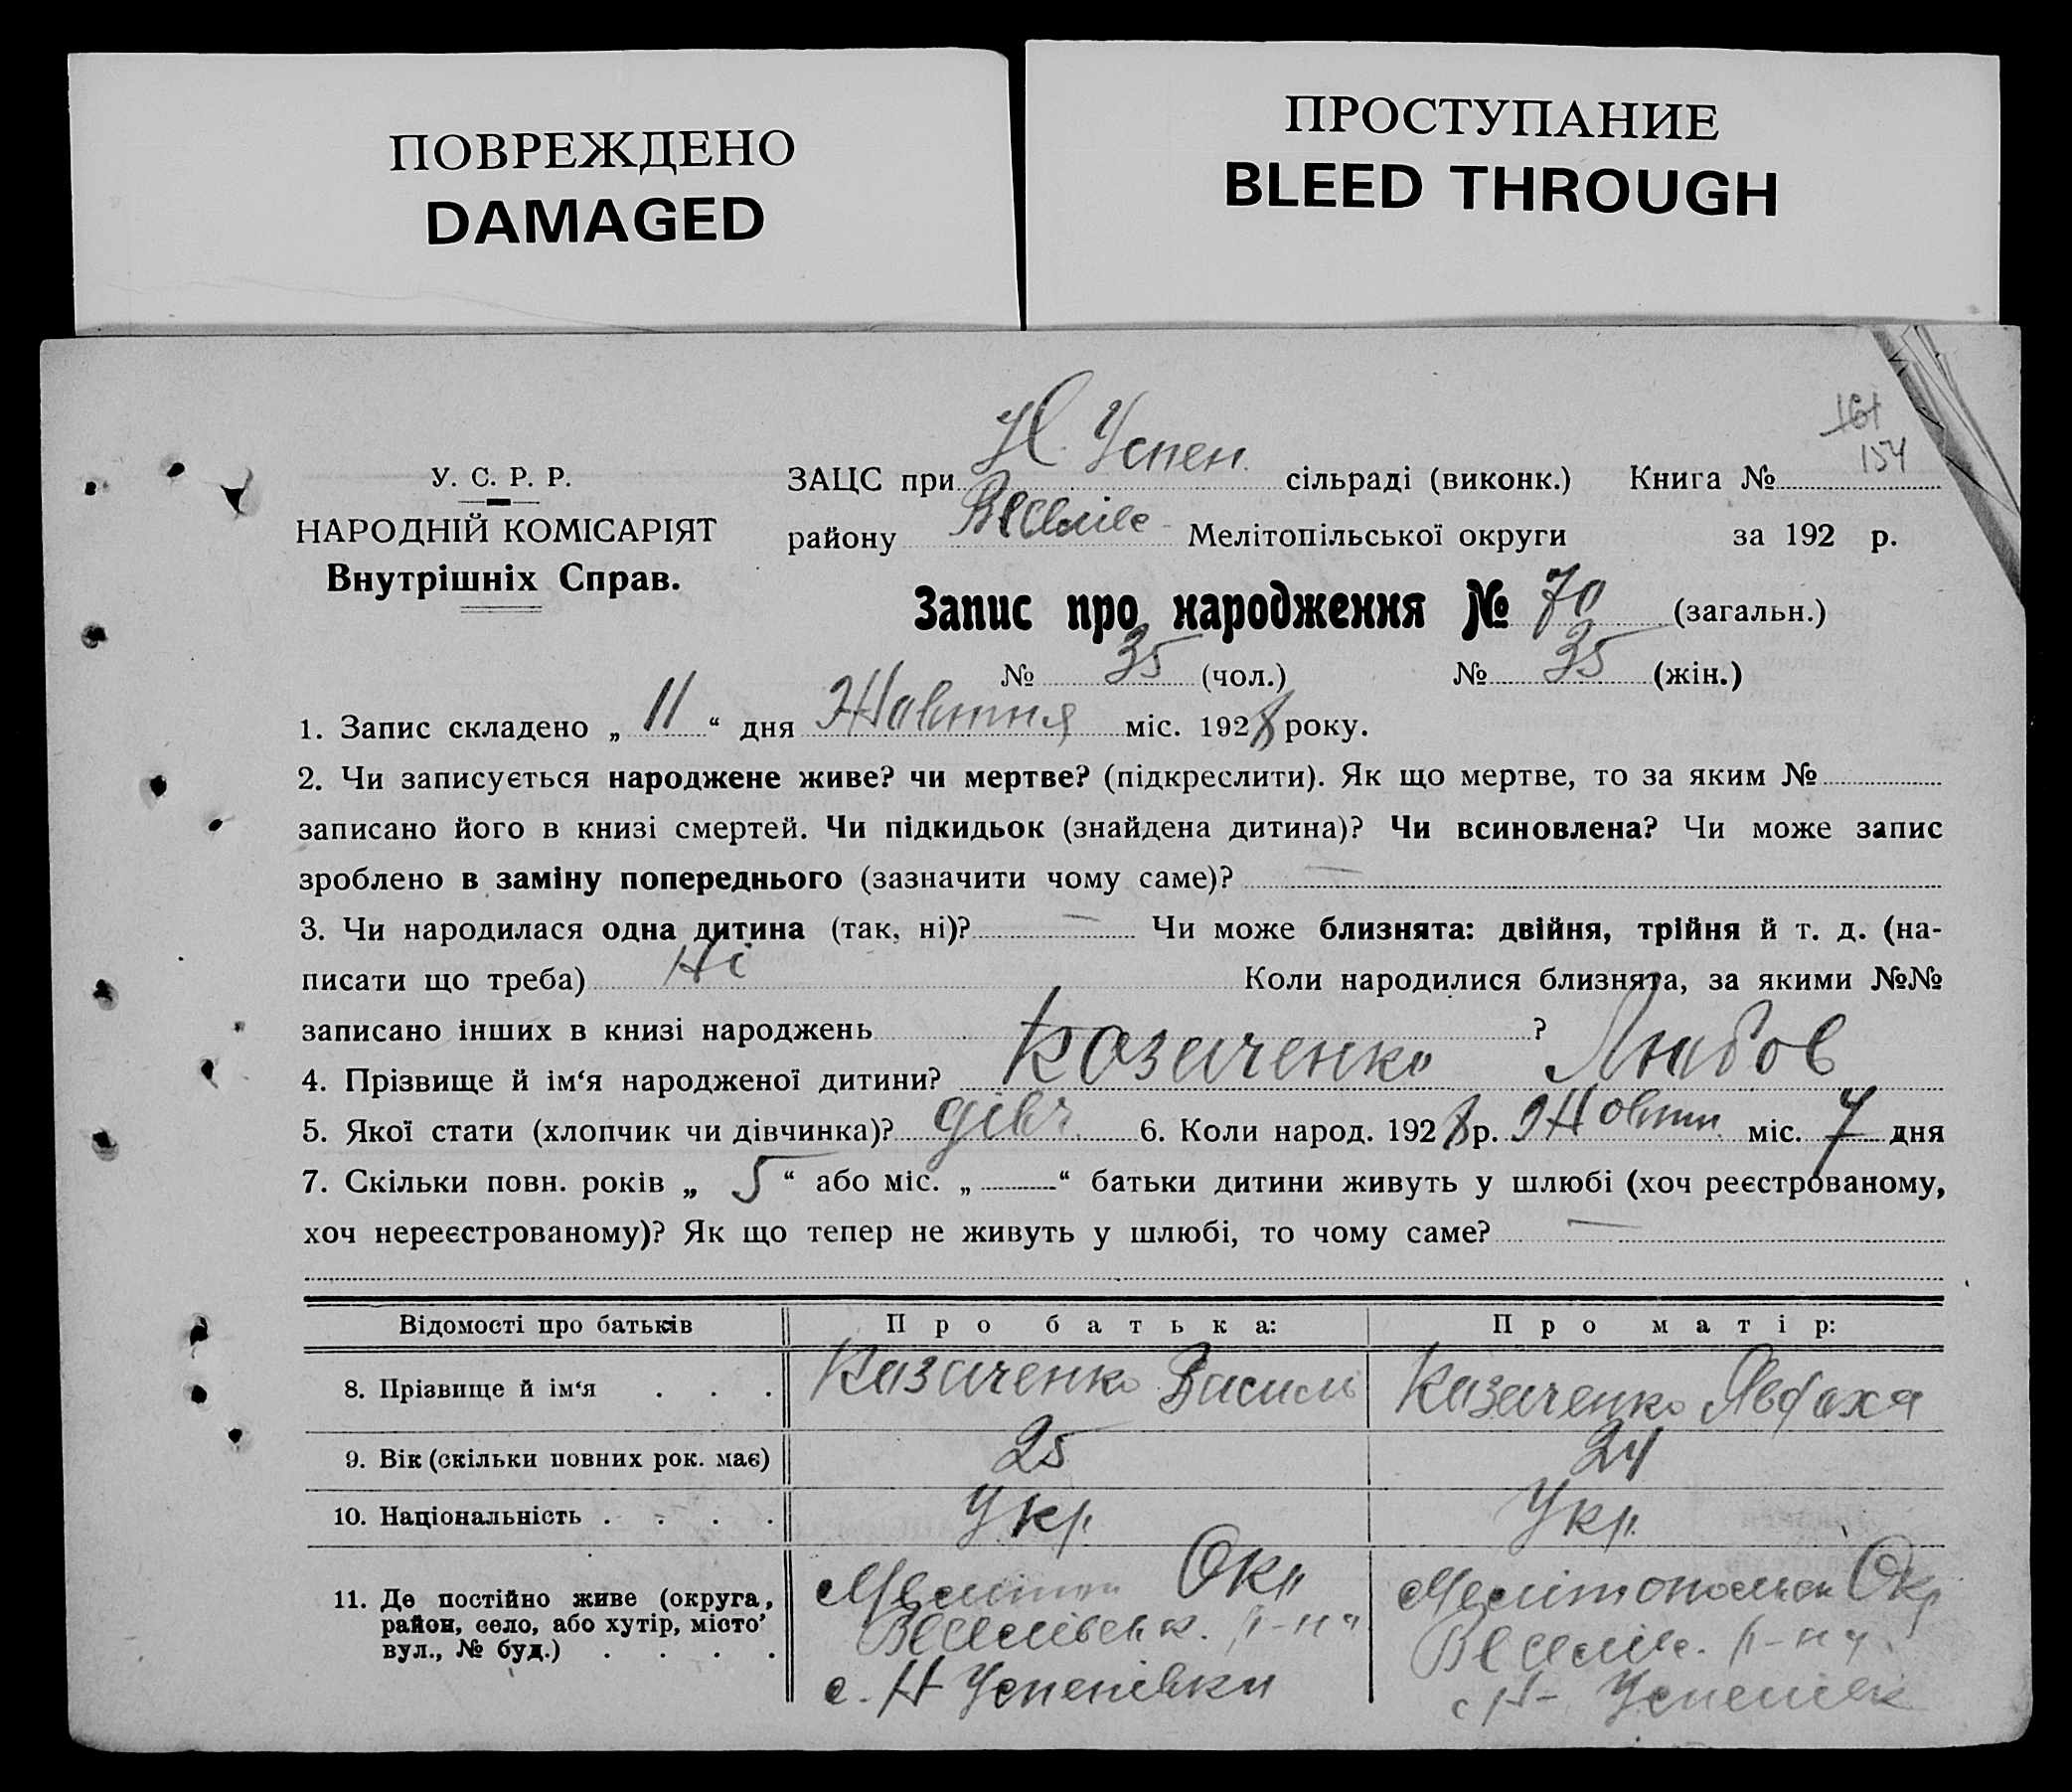 ПОВРЕЖДЕНО
DAMAGED
ПРОСТУПАНИЕ
BLEED THROUGH
161
154
У. С. Р. Р.
НАРОДНІЙ КОМІСАРІЯТ
Внутрішніх Справ.
ЗАЦС при Н. Успен. сільраді (виконк.) Книга №
району Веселівс Мелітопільської округи за 192 р.
Запис про народження № 70 (загальн.)
№ 35 (чол.) № 35 (жін.)
1. Запис складено „ 11 “ дня Жовтня міс. 1928 року.
2. Чи записується народжене живе? чи мертве? (підкреслити). Як що мертве, то за яким №
записано його в книзі смертей. Чи підкидьок (знайдена дитина)? Чи всиновлена? Чи може запис
зроблено в заміну попереднього (зазначити чому саме)? —
3. Чи народилася одна дитина (так, ні)? — Чи може близнята: двійня, трійня й т. д. (на-
писати що треба) Ні Коли народилися близнята, за якими №№
записано інших в книзі народжень ?
4. Прізвище й ім‘я народженої дитини? Казаченко Любов
5. Якої стати (хлопчик чи дівчинка)? дівч. 6. Коли народ. 1928 р. Жовтн. міс. 7 дня
7. Скільки повн. років „ 5 “ або міс. „ — “ батьки дитини живуть у шлюбі (хоч реєстрованому,
хоч нереєстрованому)? Як що тепер не живуть у шлюбі, то чому саме? —
Відомості про батьків Про батька: Про матір:
8. Прізвище й ім‘я . . . Казаченко Василь Казаченко Явдоха
9. Вік (скільки повних рок. має) 25 24
10. Національність . . . . Укр. Укр.
11. Де постійно живе (округа,
район, село, або хутір, місто’
вул., № буд.) . . . .
Мелітоп Окр
Веселівськ. р-на
с. Н Успенівки
Мелітопольськ Окр
Веселівс. р-ну.
с Н- Успенівк